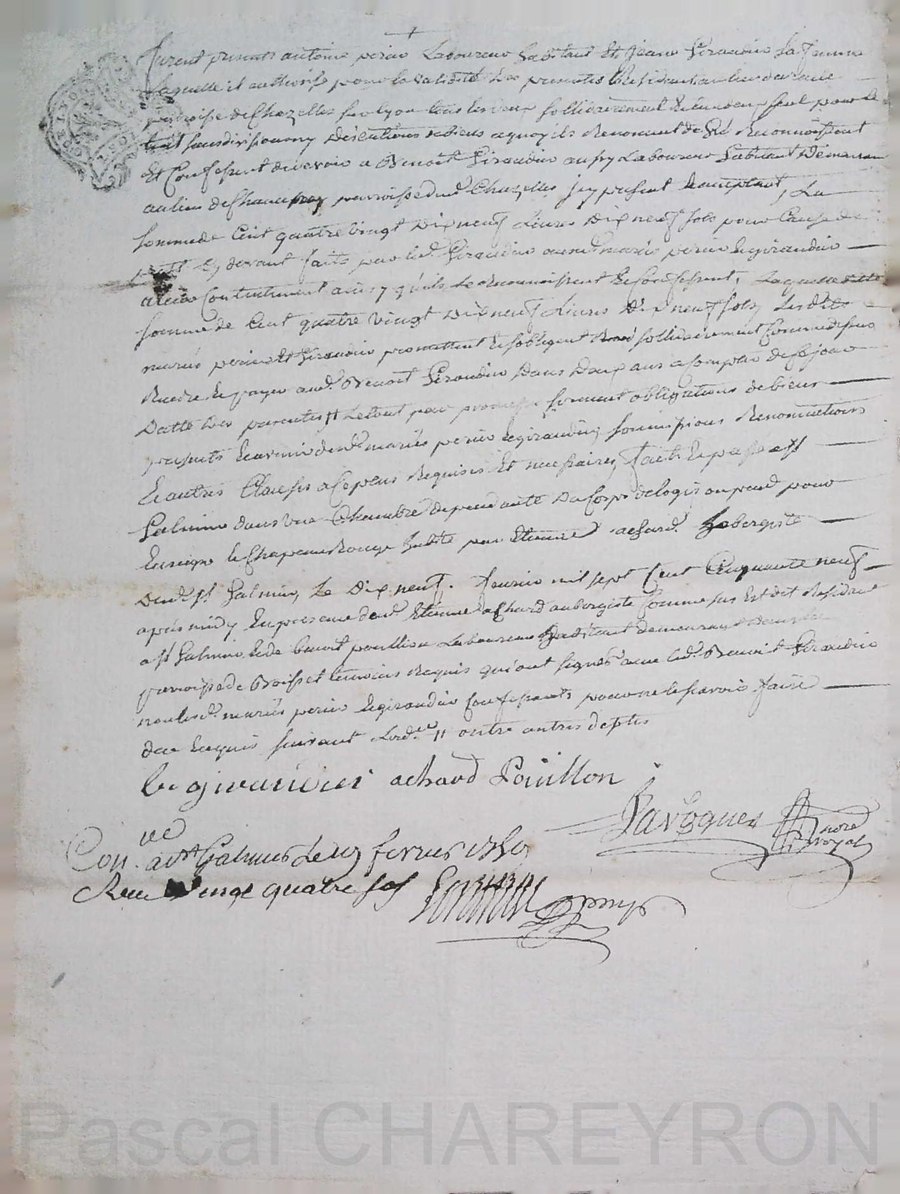 furent presents antoine perier Laboureur habitant Et jeane Giraudier sa femme
laquelle il authorise pour la validité des presentes Residents au lieu
parroisse de Chazelles sur Lyon tous les deux sollidairement un deux seul pour le
tout sans division ny Discution de biens a quoy ils Renoncent de gré Reconnoissent
Et Confessent devoir a Benoit Giraudier aussy Laboureur habitant Demeurant
au lieu de parroisse dud. Chazelles icy present acceptant, La
somme de Cent quatre vingt Dix neuf Livres Dix neuf sols pour Cause de
prest cy devant faits par led. Giraudier auxd. mariés perier et giraudier
a leur Contentement ainsy qu'ils le Reconnoissent et Confessent, Laquelle ditte
somme de Cent quatre vingt Dix neuf Livres Dix neuf sols, Lesdits
mariés perier Et Giraudier promettent et s'obligent sollidairement Comme dessus
Rendre et payer aud. Benoit Giraudier Dans Deux ans a compter de ce jour
Datte des presentes le tout par promesse serment obligations de biens
presents et avenir desd. mariés perier et giraudier, soumissions Renonciations
et autres Clauses a ce plus Requises Et necessaires, fait et passé a st
Galmier dans une Chambre dependante du Corps de logis ou pend pour
Enseigne le Chapeau Rouge habité par Etienne achard aubergiste
Dud. st Galmier, Le Dix neuf fevrier mil sept Cent Cinquante neuf
après midy En presence dud. Etienne achard aubergiste Comme sus Est dit Resident
a st Galmier et de benoit pouillon Laboureur habitant demeurant
parroisse de Boisset temoins Requis qui ont signés avec led. Benoit Giraudier
non lesd. mariés perier et giraudier Confessants pour ne le sçavoir faire
de ce Enquis suivant L'ord.ce outre autres depts
b giraudier achard Pouillon
Favogues nore royal
Con. a st Galmier le 19 fevrier
Reçu vingt quatre sols
Pascal CHAREYRON